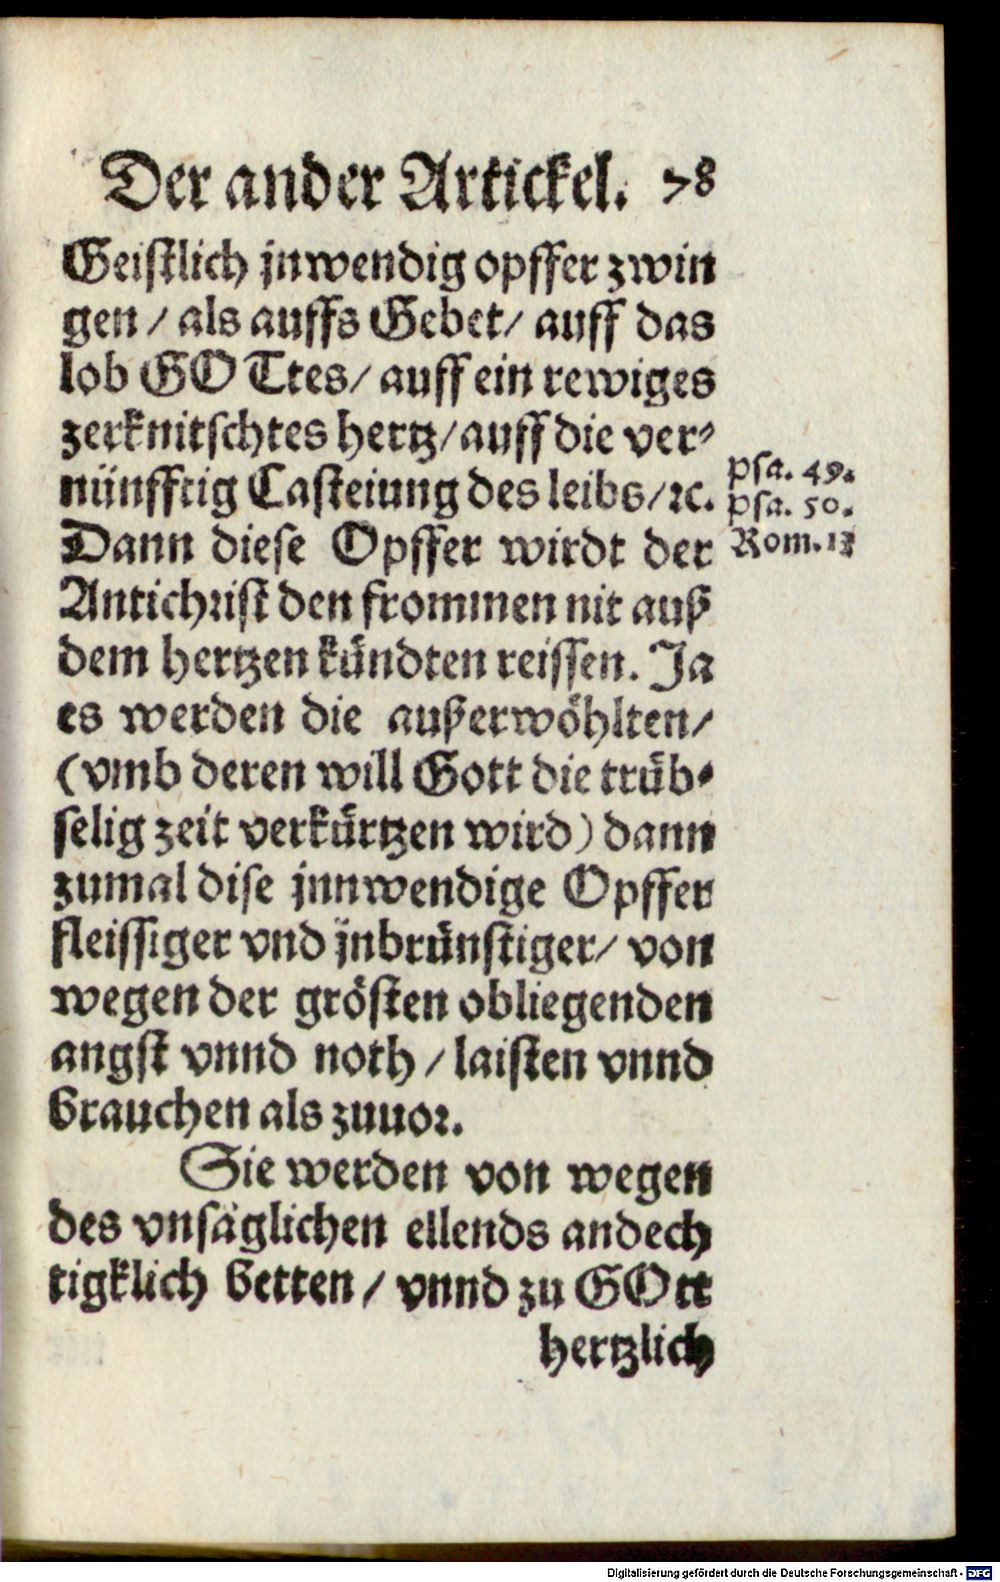 Der ander Artickel. 78
Geistlich jnwendig opffer zwin
gen / als auffs Gebet / auff das
lob GOTtes / auff ein rewiges
zerknitschtes hertz / auff die ver-
nünfftig Casteiung des leibs / ꝛc.
Psa. 49.
Psa. 50.
Rom. 12
Dann diese Opffer wirdt der
Antichrist den frommen nit auß
dem hertzen kündten reissen. Ja
es werden die außerwöhlten /
(vmb deren will Gott die trüb-
selig zeit verkürtzen wird) dann
zumal dise jnnwendige Opffer
fleissiger vnd jnbrünstiger / von
wegen der grösten obliegenden
angst vnnd noth / laisten vnnd
brauchen als zuuor.
Sie werden von wegen
des vnsäglichen ellends andech
tigklich betten / vnnd zu GOtt
hertzlich
Digitalisierung gefördert durch die Deutsche Forschungsgemeinschaft - DFG